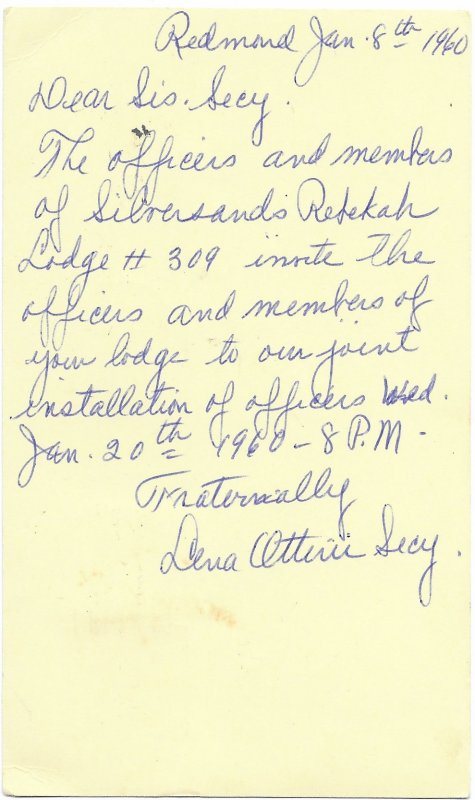 Redmond Jan. 8th 1960
Dear Sis. Secy.
The officers and members
of Silversands Rebekah
Lodge # 309 invite the
officers and members of
your lodge to our joint
installation of officers Wed.
Jan. 20th 1960 - 8 P.M.
Fraternally
Lena Secy.